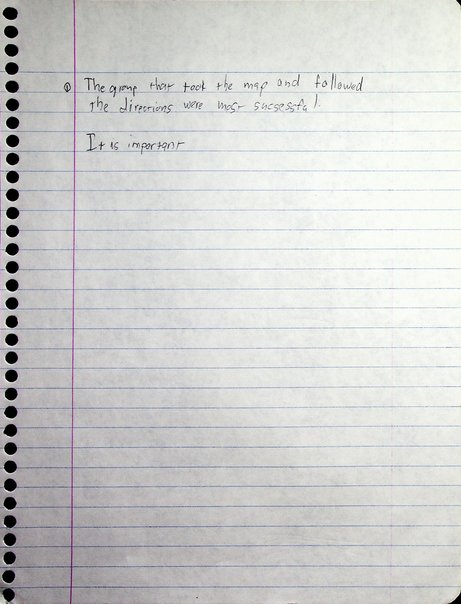 ① The group that took the map and followed
the directions were most sucsessful.
It is important